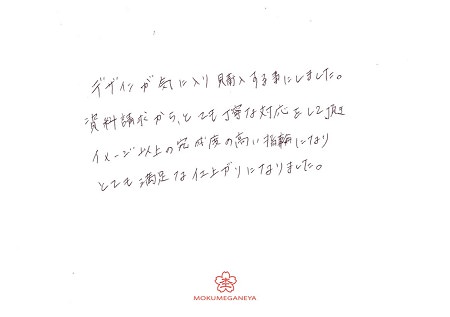 デザインが気に入り購入する事にしました。
資料請求から、とても丁寧な対応をして頂き
イメージ以上の完成度の高い指輪になり
とても満足な仕上がりになりました。
杢
MOKUMEGANEYA